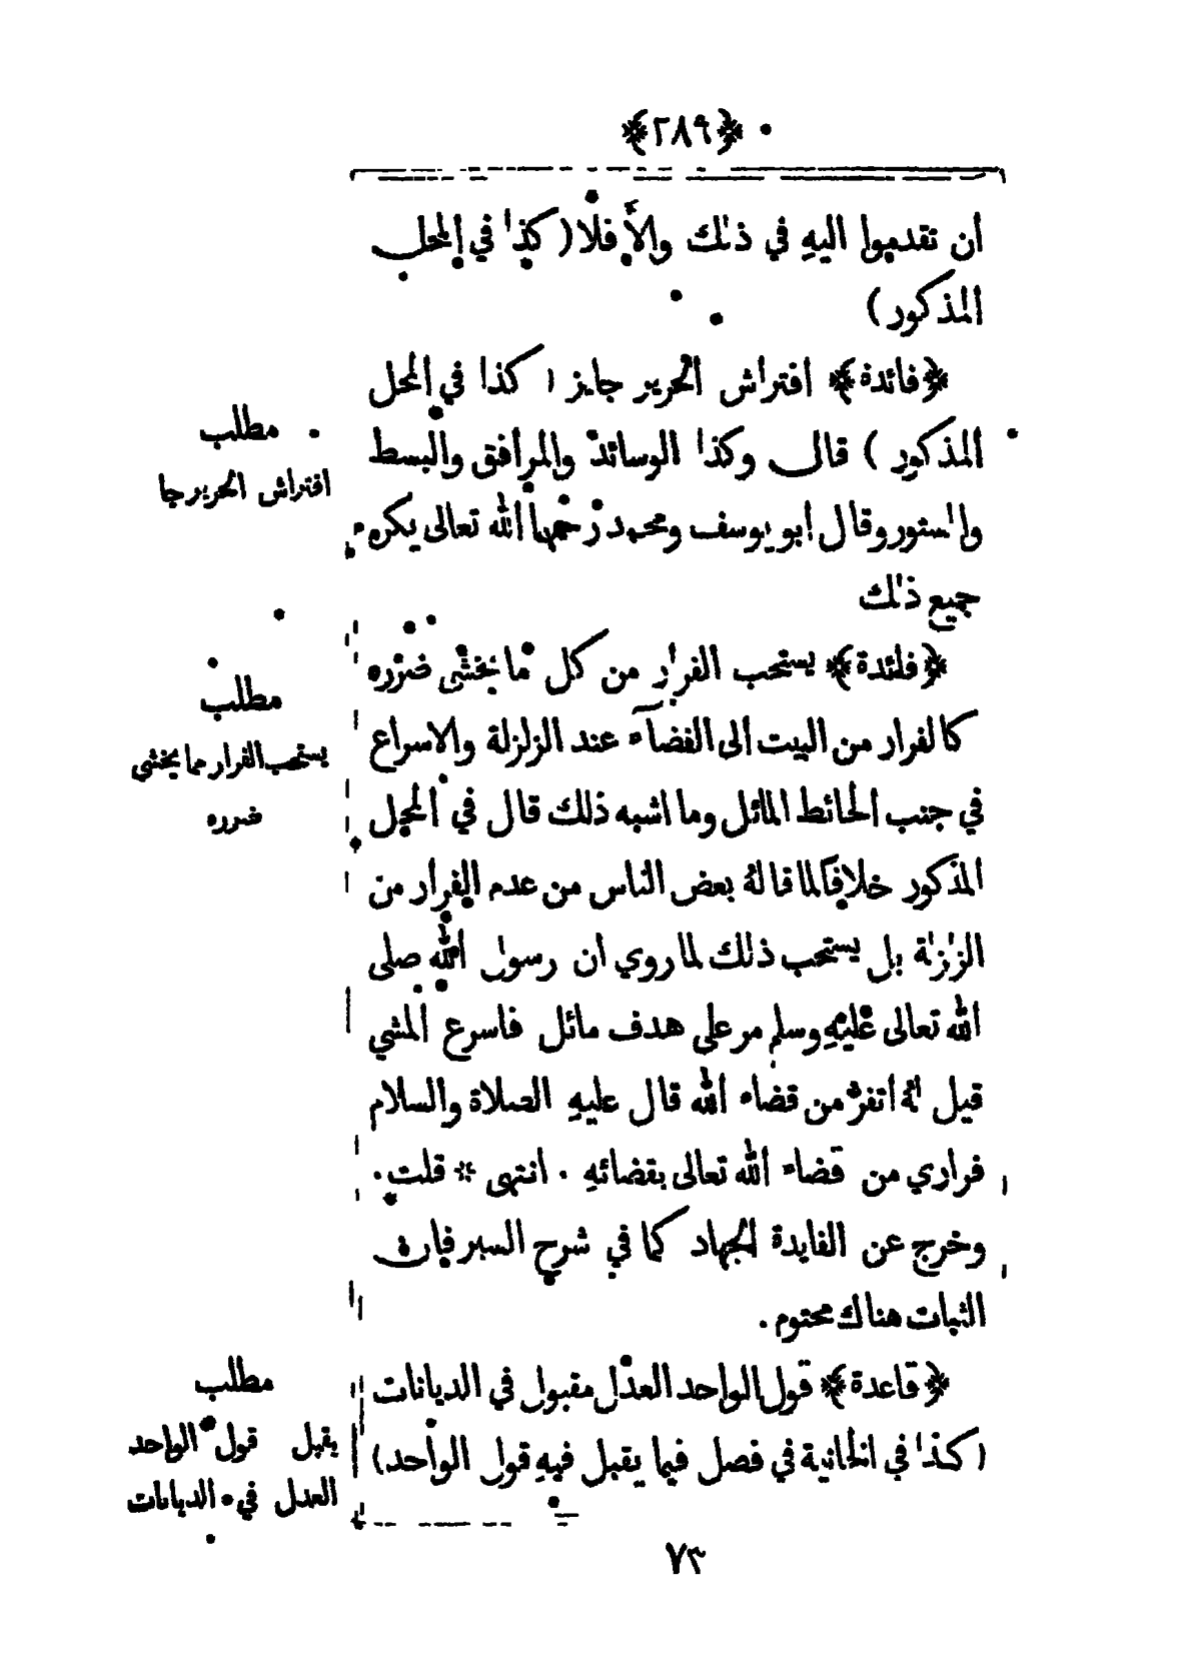 ﴿٢٨٩﴾
ان تقدموا اليهِ في ذلك والأ فلا (كذا في المحل
المذكور)
﴿فائدة﴾ افتراش الحرير جايز ( كذا في المحل
المذكور ) قال وكذا الوسائد والمرافق والبسط
والستور وقال ابو يوسف ومحمد رحمهما الله تعالى يكره
جميع ذلك
﴿فائدة﴾ يستحب الفرار من كل ما يخشى ضرره
كالفرار من البيت الى الفضآء عند الزلزلة والاسراع
في جنب الحائط المائل وما اشبه ذلك قال في المحل
المذكور خلافًا لما قالهُ بعض الناس من عدم الفرار من
الزلزلة بل يستحب ذلك لما روي ان رسول الله صلى
الله تعالى عليهِ وسلم مر على هدف مائل فاسرع المشي
قيل لهُ أتفرّ من قضاء الله قال عليهِ الصلاة والسلام
فراري من قضاء الله تعالى بقضائهِ . انتهى * قلت .
وخرج عن الفايدة الجهاد كما في شرح السير فان
الثبات هناك محتوم .
﴿قاعدة﴾ قول الواحد العدل مقبول في الديانات
(كذا في الخانية في فصل فيما يقبل فيهِ قول الواحد)
مطلب
افتراش الحرير جا
مطلب
يستحب الفرار مما يخشى
ضرره
مطلب
يقبل قول الواحد
العدل في الديانات
٧٣